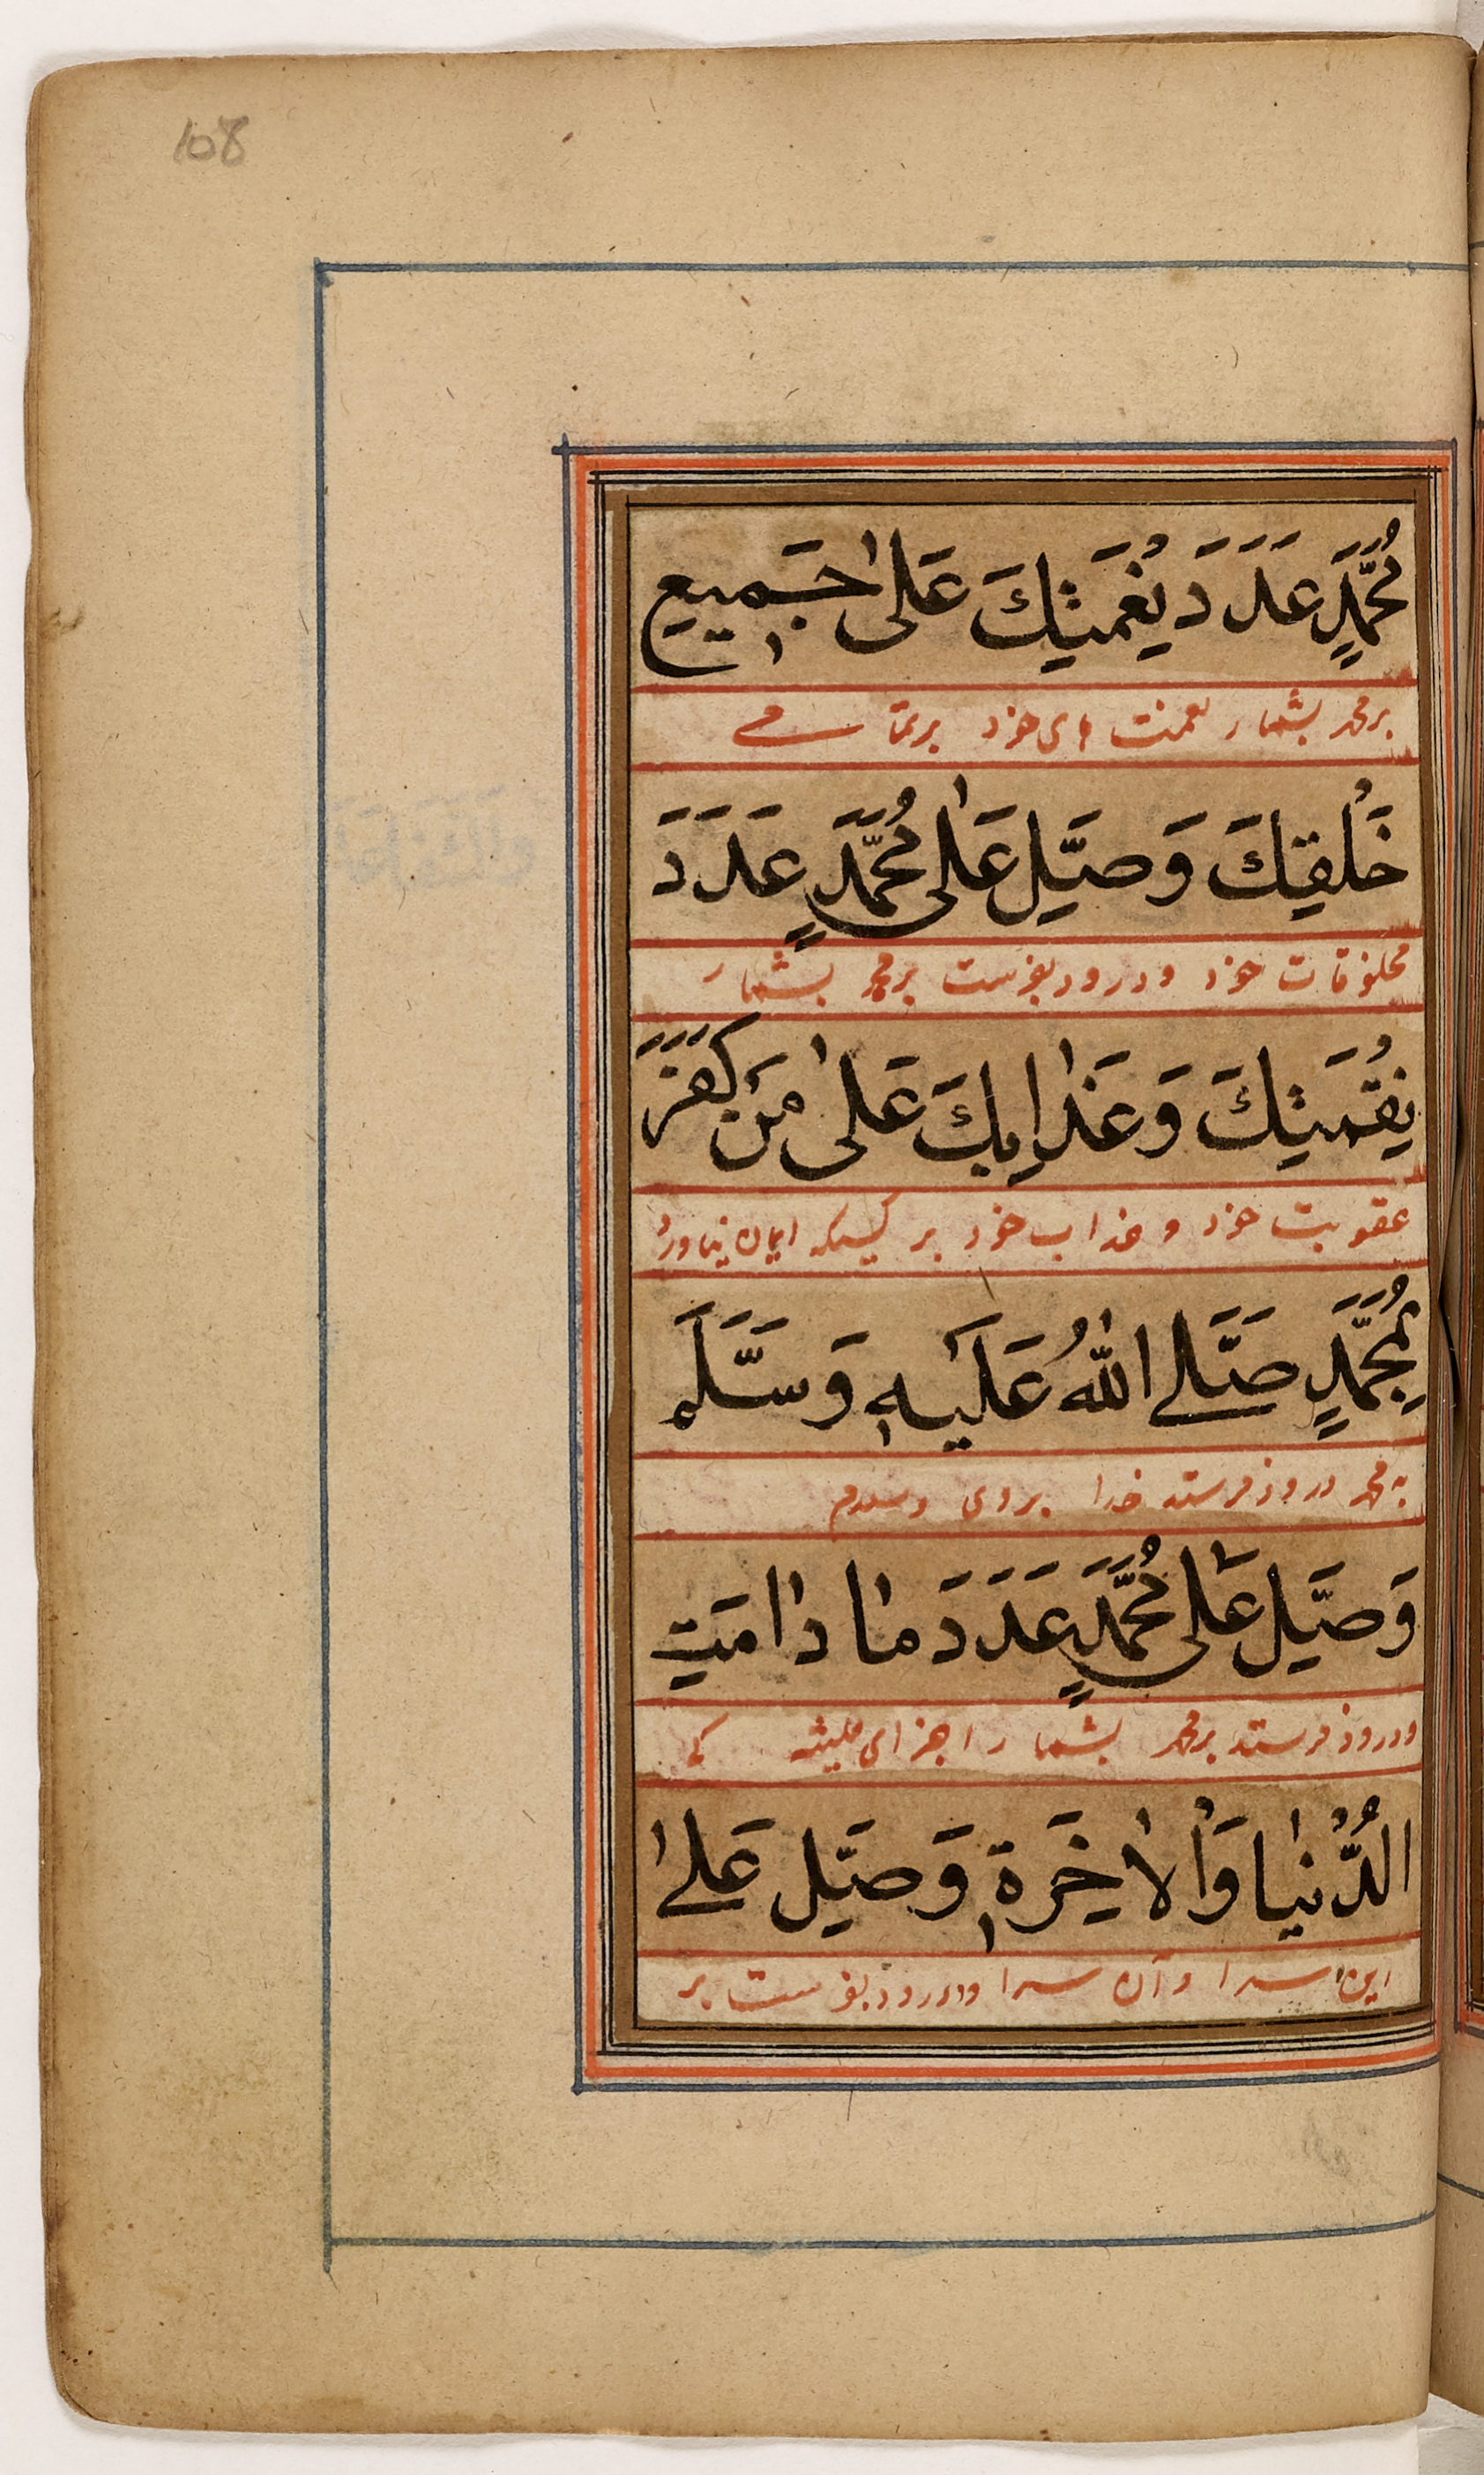 108
مُحَمَّدٍ عَدَدَ نِعْمَتِكَ عَلٰى جَمِيعِ
بر محمد بشمار نعمت های خود بر تمامی
خَلْقِكَ وَصَلِّ عَلٰى مُحَمَّدٍ عَدَدَ
مخلوقات خود و درود بفرست بر محمد بشمار
نِقْمَتِكَ وَعَذَابِكَ عَلٰى مَنْ كَفَرَ
عقوبت خود و عذاب خود بر کسیکه ایمان نیاورد
بِمُحَمَّدٍ صَلَّى اللّٰهُ عَلَيْهِ وَسَلَّمَ
به محمد درود فرستد خدا بروی و سلام
وَصَلِّ عَلٰى مُحَمَّدٍ عَدَدَ مٰا دٰامَتِ
و درود فرستد بر محمد بشمار اجزای همیشه کی
الدُّنْيٰا وَالْاٰخِرَةِ وَصَلِّ عَلٰى
این سرا و آن سرا و درود بفرست بر